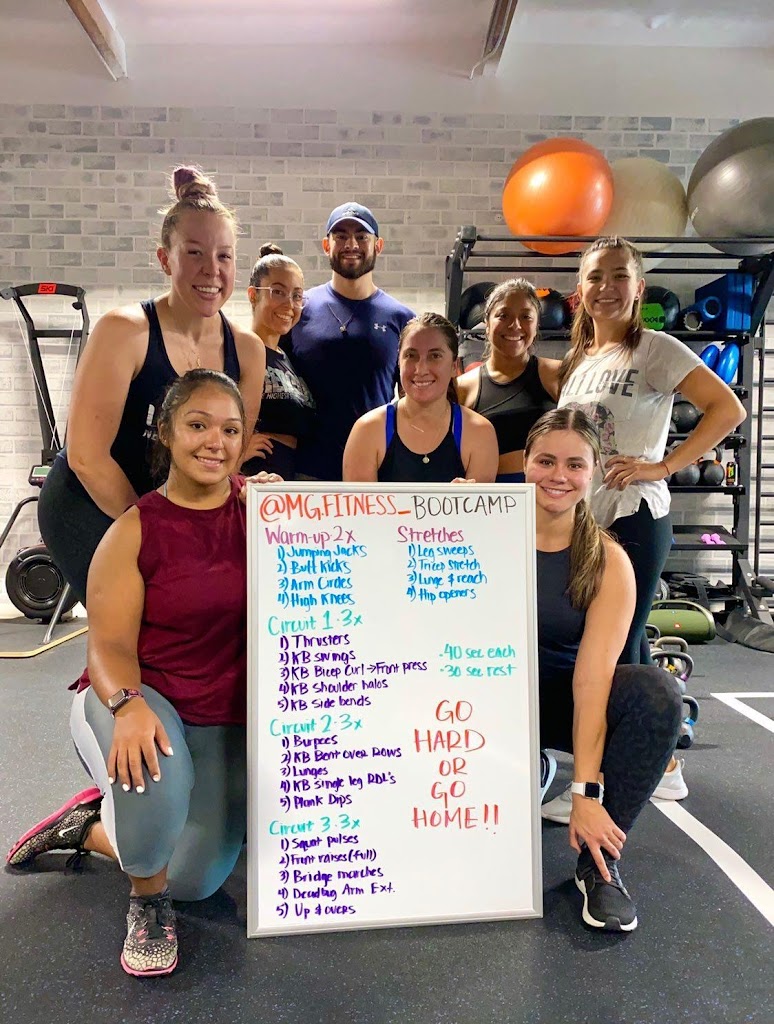 @MG.FITNESS_BOOTCAMP
Warm-up 2x
1) Jumping Jacks
2) Butt Kicks
3) Arm Circles
4) High Knees
Stretches
1) Leg sweeps
2) Tricep stretch
3) Lunge & reach
4) Hip openers
Circuit 1·3x
1) Thrusters
2) KB swings
3) KB Bicep Curl→Front press
4) KB Shoulder halos
5) KB Side bends
-40 sec each
-30 sec rest
Circuit 2·3x
1) Burpees
2) KB Bent over ROWS
3) Lunges
4) KB single leg RDL's
5) Plank Dips
Circuit 3·3x
1) Squat pulses
2) Front raises (full)
3) Bridge marches
4) Deadbug Arm Ext.
5) Up & overs
GO
HARD
OR
GO
HOME!!
LOVE
SKI